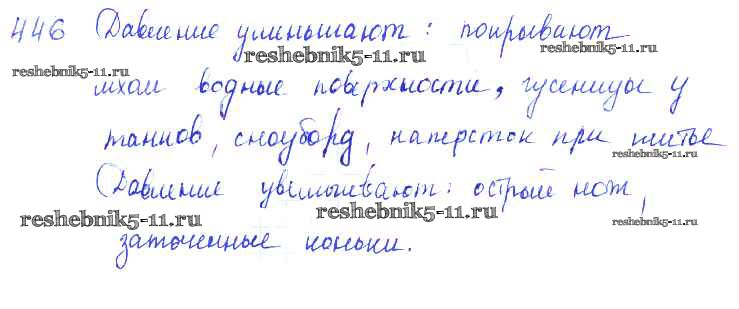 446 Давление уменьшают: покрывают
reshebnik5-11.ru
reshebnik5-11.ru
reshebnik5-11.ru
мхом водные поверхности, гусеницы у
танков, сноуборд, наперсток при шитье
reshebnik5-11.ru
Давление увеличивают: острый нож,
reshebnik5-11.ru
reshebnik5-11.ru
reshebnik5-11.ru
заточенные коньки.